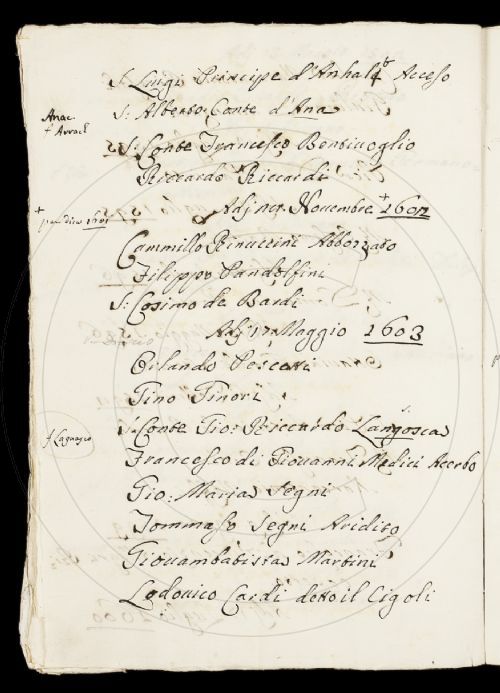 S: Luigi Principe d'Anhalt Acceso
Anac
S: Alberto Conte d'Ana
S: Conte Francesco Bentivoglio
Riccardo Riccardi
Adj Novembre + 1602
+ 1601
Cammillo Rinuccini Abbozzato
Filippo Pandolfini
S: Cosimo de Bardi
Adj 17 Maggio 1603
Orlando Pescetti
Gino Ginori
S: Conte Gio: Riccardo Langosca
f Lagnasco
Francesco di Giovanni Medici Acerbo
Gio: Maria Segni
Tommaso Segni Aridito
Giovambatista Martini
Lodovico Cardi detto il Cigoli